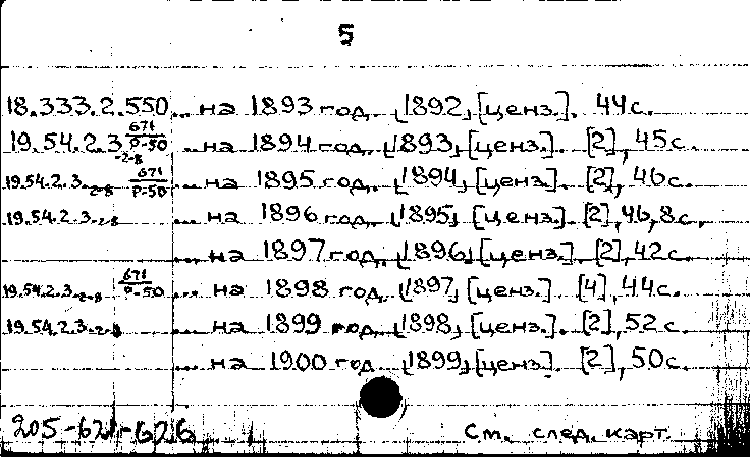 5
18.333.2.550 ... на 1893 год. [1892] [ценз.]. 44с.
19.54.2.3 671/Р-50 -2-8 ... на 1894 год. [1893] [ценз.]. [2], 45с.
19.54.2.3.-2-8 671/Р-50 ... на 1895 год. [1894] [ценз.]. [2], 46с.
19.54.2.3.-2-8 ... на 1896 год. [1895] [ценз.] [2], 46, 8с.
... на 1897 год. [1896] [ценз.] [2], 42с.
19.54.2.3.-2-8 671/Р-50 ... на 1898 год. [1897] [ценз.] [4], 44с.
19.54.2.3.-2-8 ... на 1899 год. [1898] [ценз.]. [2], 52с.
... на 1900 год [1899] [ценз.] [2], 50с.
205-621-626 См. след. карт.